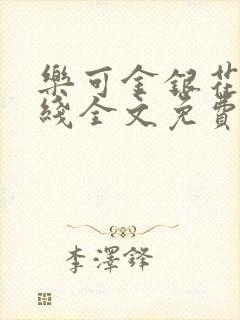 樂可金銀花
綫全文免費
李澤鋒